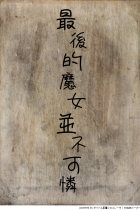 最後的魔女並不可憐